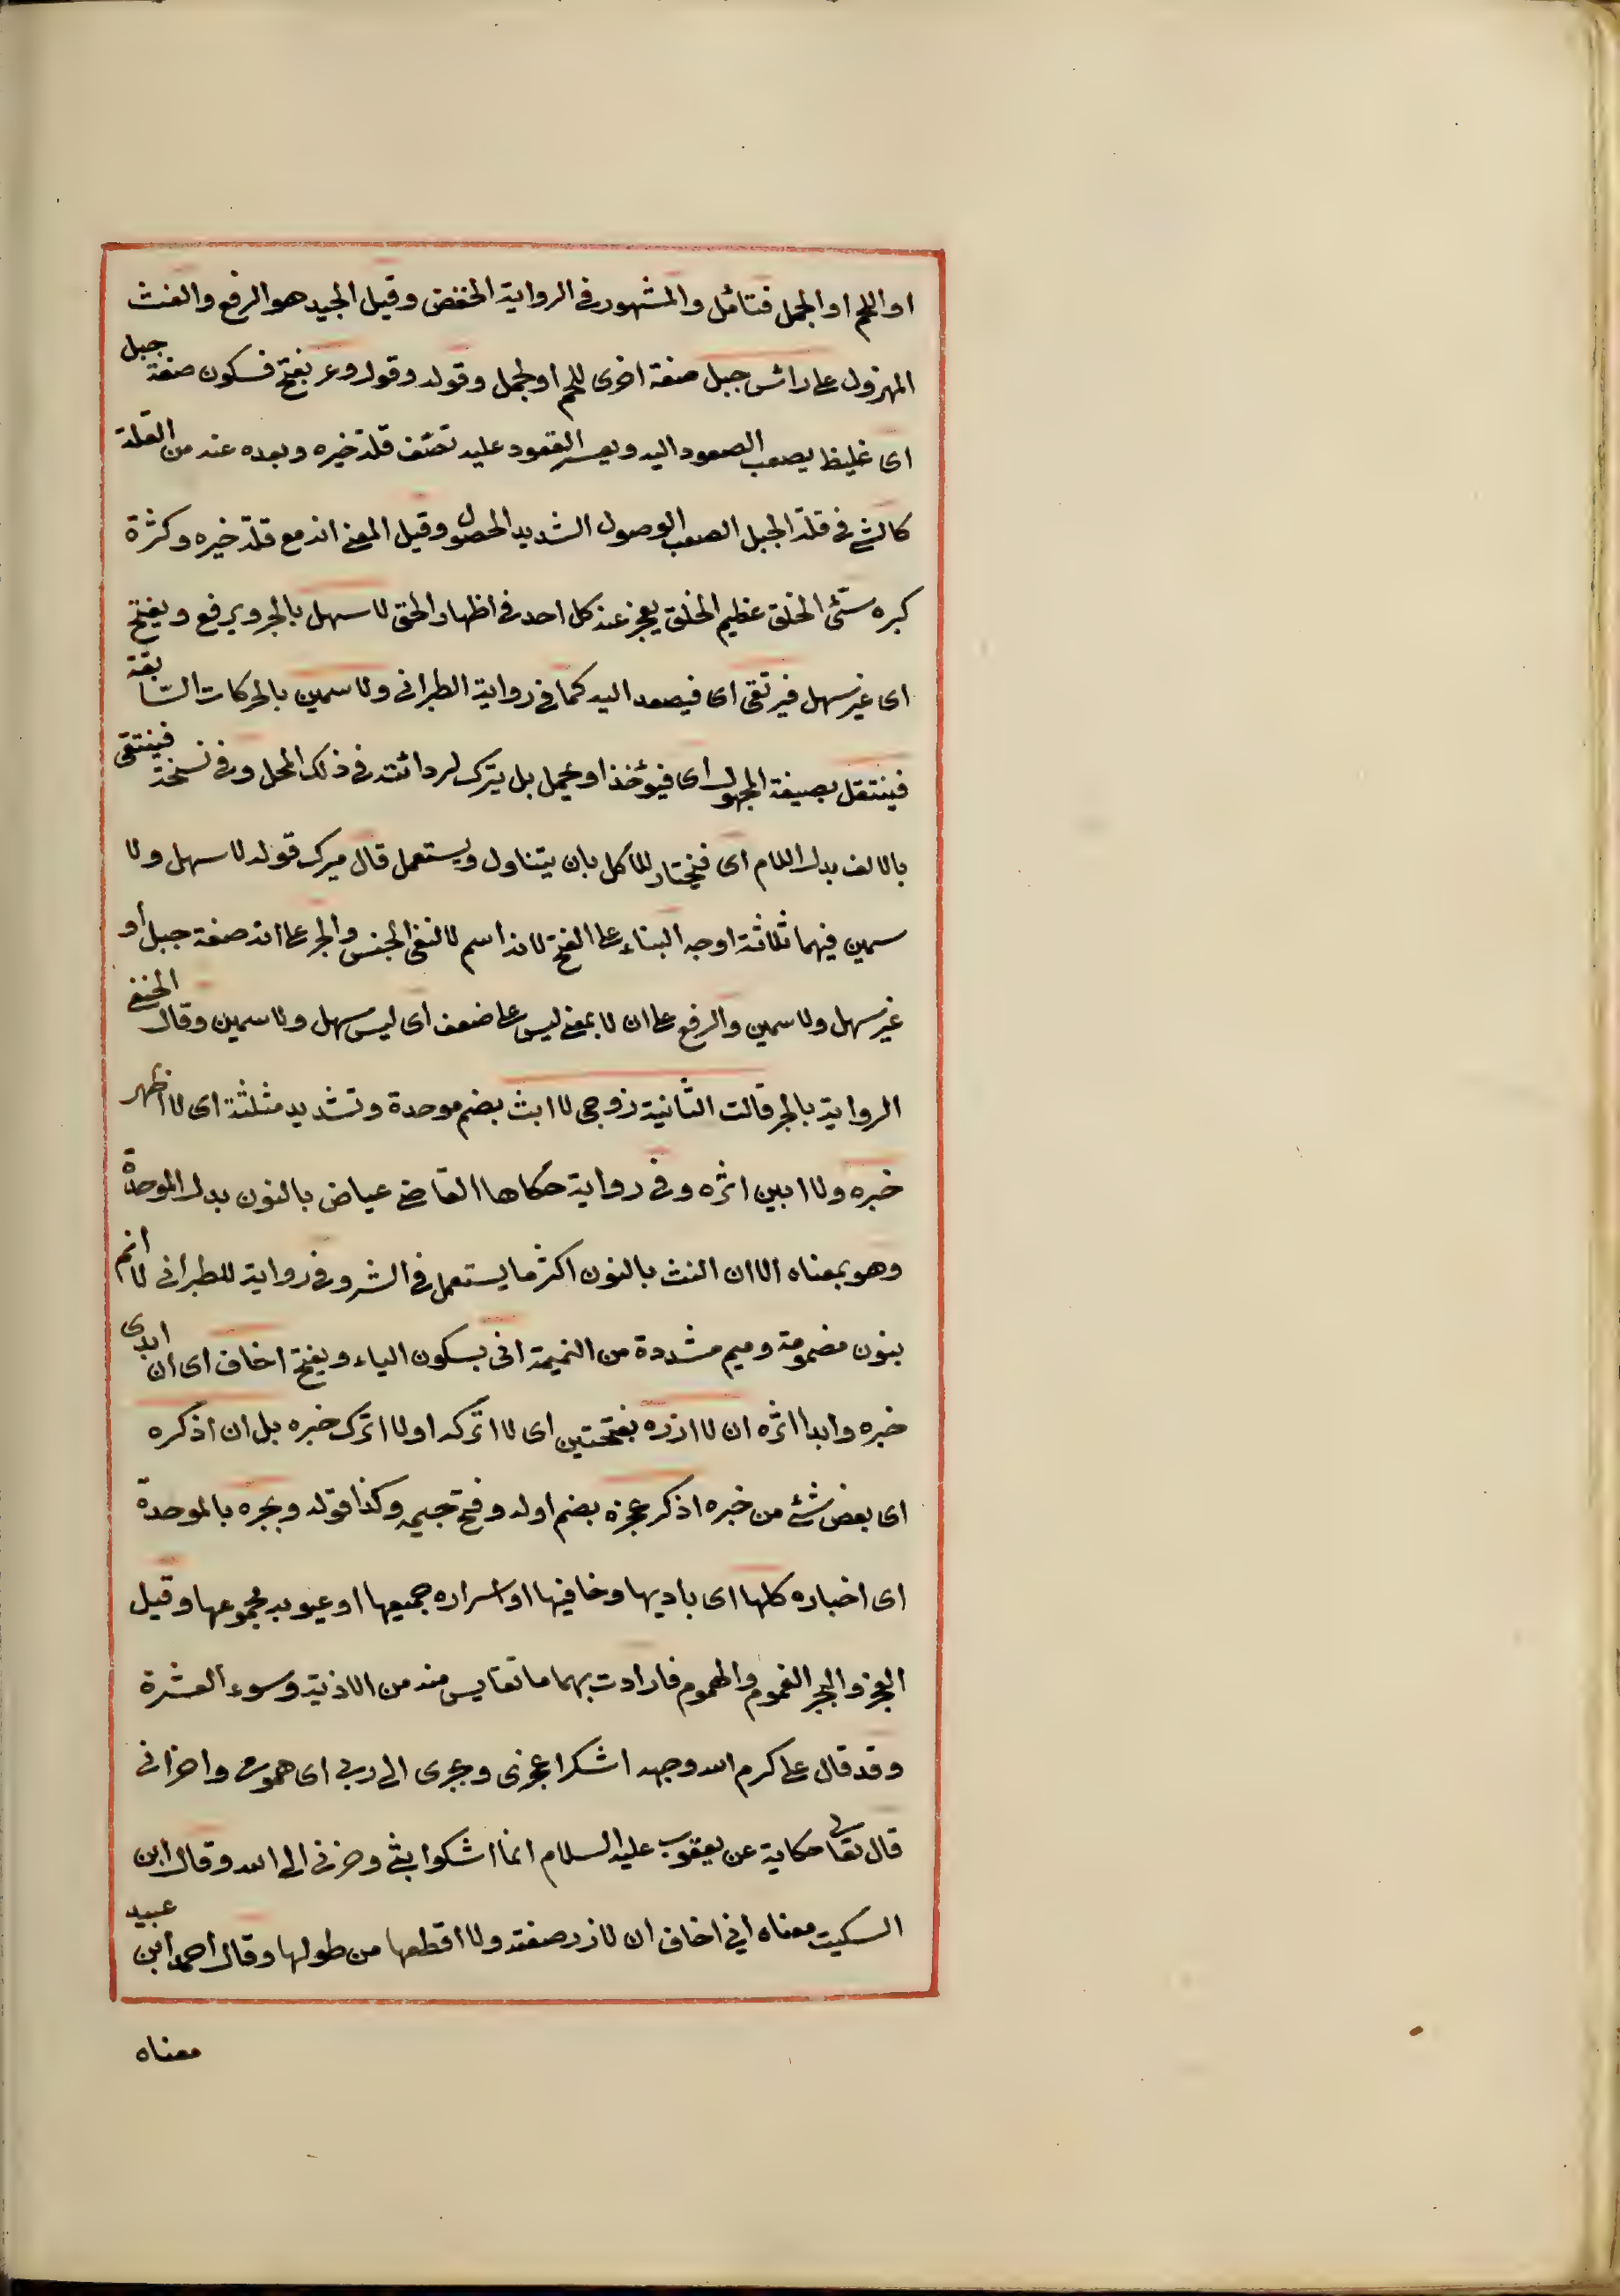 او اللحم او الجمل فتأمل والمشهور فى الرواية الخفض وقيل الجيد هو الرفع والغث
المهزول على رأس جبل صفة اخرى للحم او لجمل وقوله وقوله وعر بفتح فسكون صفة جبل
اى غليظ يصعب الصعود اليه ويعسر القعود عليه تصف قلة خيره وبعده عنه من القلة
كالشئ فى قلة الجبل الصعب الوصول الشديد الحصول وقيل المعنى انه مع قلة خيره وكثرة
كبره سئ الخلق عظيم الخلق يعجز عنه كل احد فى اظهار الحق لا سهل بالجر ويرفع ويفتح
اى غير سهل فيرتقى اى فيصعد اليه كما فى رواية الطبرانى ولا سمين بالحركات السّابقة
فينتقل بصيغة المجهول اى فيؤخذ او يحمل بل يترك لردائته فى ذلك المحل وفى نسخة فينتقى
بالالف بدل اللام اى فيختار للاكل بان يتناول ويستعمل قال ميرك قوله لا سهل ولا
سمين فيهما ثلاثة اوجه البناء على الفتح لانه اسم لا لنفى الجنس والجر على انه صفة جبل او
غير سهل ولا سمين والرفع على ان لا بمعنى ليس على ضعف اى ليس سهل ولا سمين وقال الحنفى
الرواية بالجر قالت الثانية زوجى لا ابث بضم موحدة وتشديد مثلثة اى لا اظهر
خبره ولا ابين اثره وفى رواية حكاها القاضى عياض بالنون بدل الموحدة
وهو بمعناه الا ان النث بالنون اكثر ما يستعمل فى الشر وفى رواية للطبرانى لا انم
بنون مضمومة وميم مشددة من النميمة انى بسكون الياء وبفتح اخاف اى ان ابدى
خبره وابدا اثره ان لا اذره بفتحتين اى لا اتركه او لا اترك خبره بل ان اذكره
اى بعض شئ من خبره اذكر عجره بضم اوله وفتح جيمه وكذا قوله وبجره بالموحدة
اى اخباره كلها اى باديها وخافيها او اسراره جميعها او عيوبه مجموعها وقيل
العجر والبجر الغموم والهموم فارادت بهما ما تقايس منه من الاذية وسوء العشرة
وقد قال على كرم الله وجهه اشكرا عجرى وبجرى الى ربى اى همومى واحزانى
قال تعالى حكاية عن يعقوب عليه السلام انما اشكوا بثى وحزنى الى الله وقال ابن
السكيت معناه انى اخاف ان لا اذر صفته ولا اقطعها من طولها وقال احمد ابن عبيد
معناه